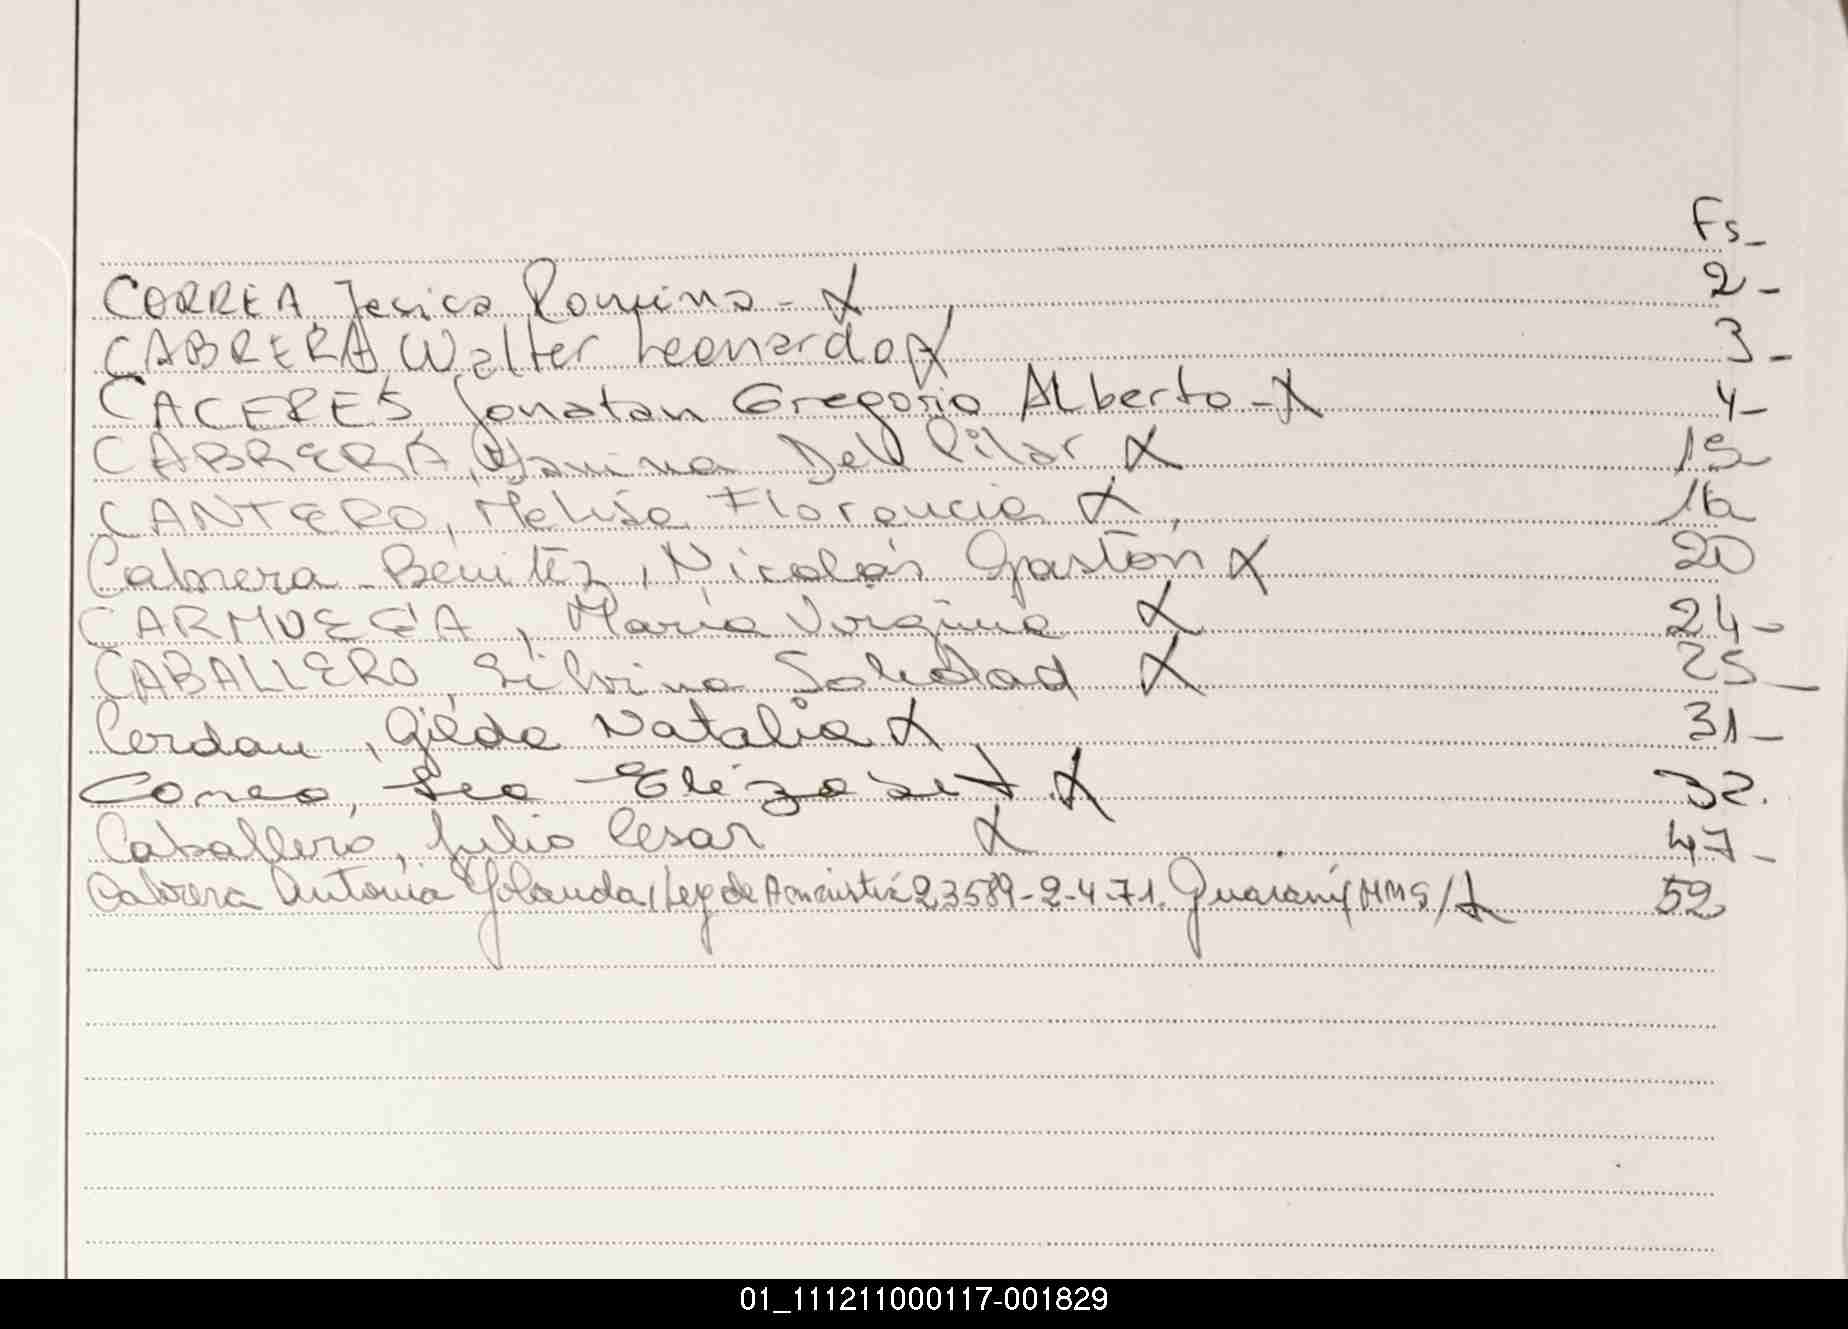 Fs_
CORREA, Jesica Romina - X 2_
CABRERA, Walter Leonardo X 3_
CACERES Jonatan Gregorio ALberto - X 4_
CABRERA, Yanina Del Pilar X 15_
CANTERO, Melisa Florencia X, 16
Cabrera Benitez, Nicolás Gastón X 20
CARMUEGA, María Virginia X 24_
CABALLERO, Silvina Soledad X 25_
Cerdan, Gilda Natalia X 31_
Correa, Lea Elizabet X 32.
Caballero, Julio Cesar X 47_
Cabrera Antonia Yolanda (Ley de Amnistía 23589-2-4-71. Guaraní MMS/X 52
01_111211000117-001829